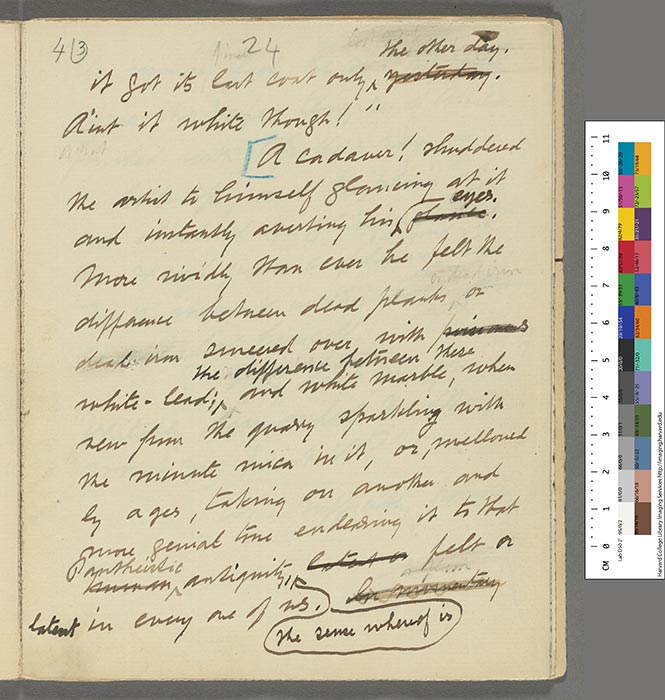 4(3) 24
the other day.
it got its last coat only ‸ yesterday.
Ain't it white though!"
[A cadaver! shuddered
the artist to himself glancing at it
eyes.
and instantly averting his ‸ glance.
More vividly than ever he felt the
difference between dead planks or
dead iron smeered over with
the difference between these
white-lead; ‸ and white marble, when
new from the quarry sparkling with
the minute mica in it or, mellowed
by ages, taking on another and
more genial tone endearing it to that
Pantheistic
human ‸ antiquity, ‸ latent or felt or
In momentary
latent in every one of us.
the sense whereof is
CM 0 1 2 3 4 5 6 7 8 9 10 11
Harvard College Library Imaging Services